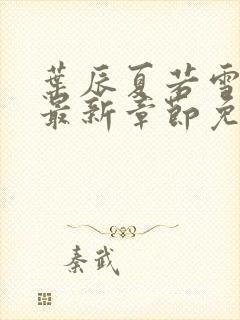 葉辰夏若雪
最新章節免
秦武